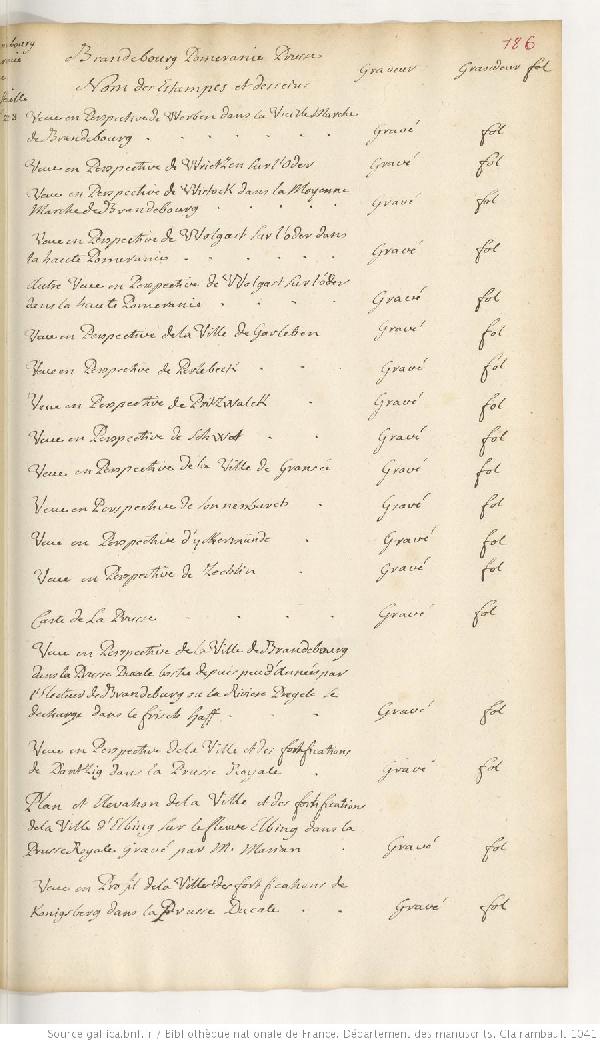 186
Brandebourg Pomeranie Prusse
Nom des Estampes et desseins Graveur Grandeur fol
Veue en Perspective de Werben dans la Vieille Marche
de Brandebourg Gravé fol
Veue en Perspective de Writzen sur l'oder Gravé fol
Veue en Perspective de Wistock dans la Moyenne
Marche de Brandebourg Gravé fol
Veue en Perspective de Wolgast sur l'oder dans
la haute Pomeranie Gravé fol
Autre Veue en Perspective de Wolgast sur l'oder
dans la haute Pomeranie Gravé fol
Veue en Perspective de la Ville de Garleben Gravé fol
Veue en Perspective de Perleberk Gravé fol
Veue en Perspective de PritzWalck Gravé fol
Veue en Perspective de SchWet Gravé fol
Veue en Perspective de la Ville de Gransée Gravé fol
Veue en Perspective de Sonnenburch Gravé fol
Veue en Perspective d'yckermunde Gravé fol
Veue en Perspective de Zechlin Gravé fol
Carte de La Prusse Gravé fol
Veue en Perspective de la Ville de Brandebourg
dans la Prusse Ducale bastie depuis peu d'années par
l'Electeur de Brandeburg ou la Riviere Pregele se
decharge dans le frisch haff Gravé fol
Veue en Perspective de la Ville et des fortifications
de Dantzig dans la Prusse Royale Gravé fol
Plan et Elevation de la Ville et des fortifications
de la Ville d'Elbing sur le fleuve Elbing dans la
Prusse Royale gravé par M. Marian Gravé fol
Veue en Profil de la Ville et des fortifications de
Konigsberg dans la Prusse Ducale Gravé fol
Source gallica.bnf.fr / Bibliothèque nationale de France. Département des manuscrits. Clairambault 1041